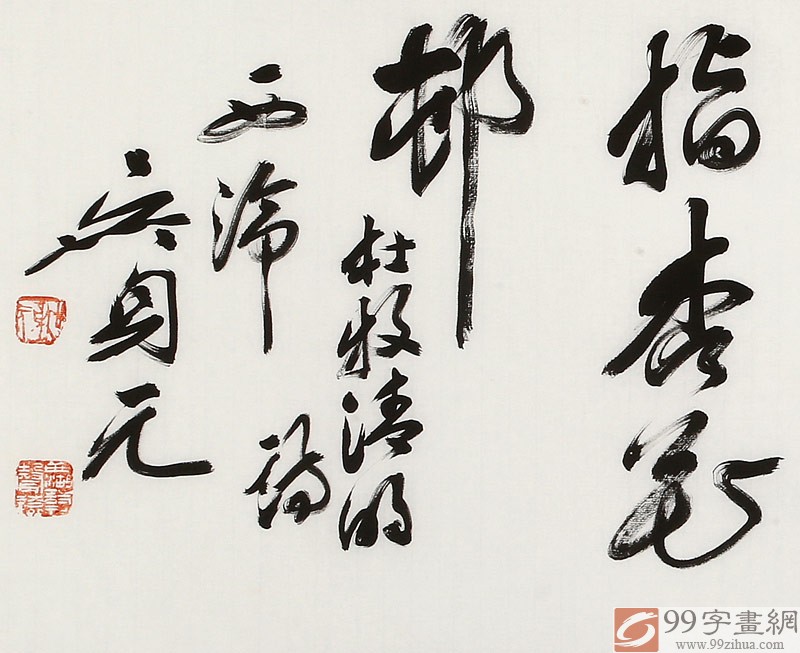 指杏花
邨
杜牧清明
詩
西泠
吴身元
99字畫網
www.99zihua.com